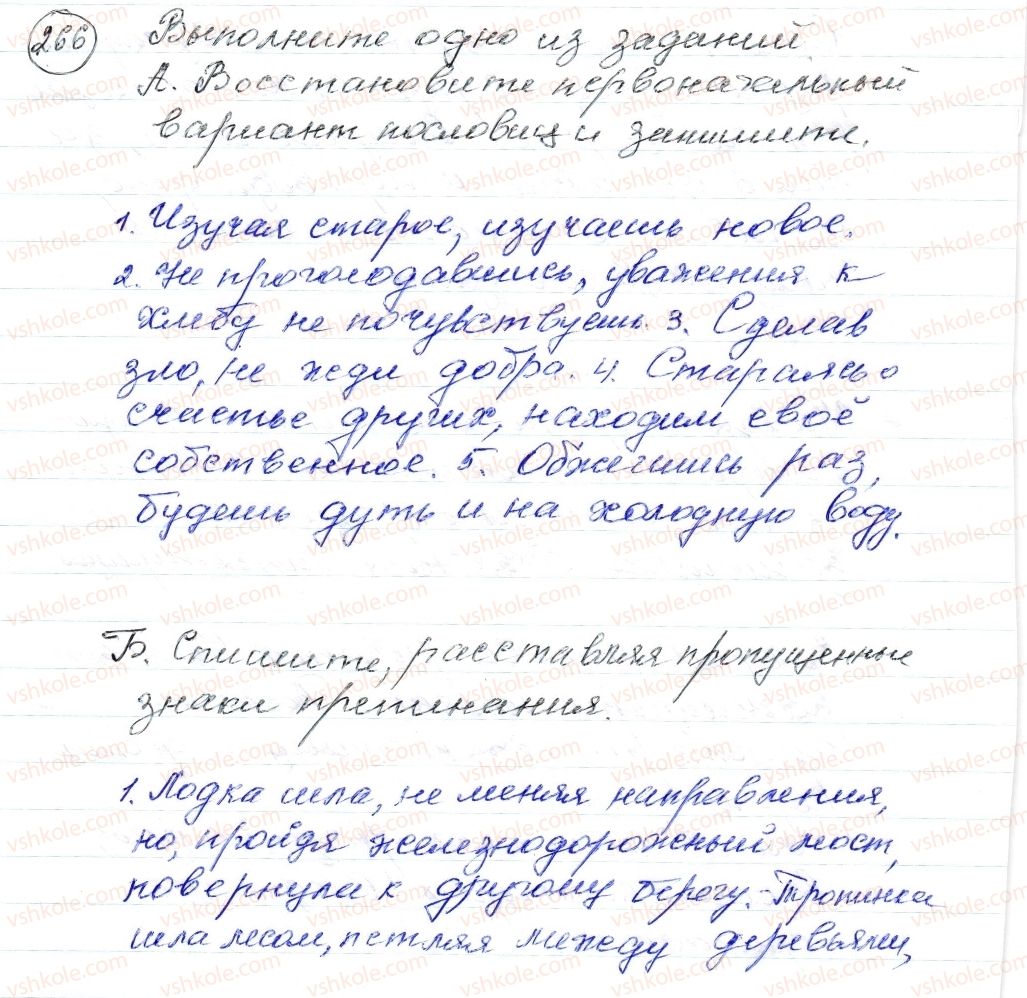 266 Выполните одно из заданий
А. Восстановите первоначальный
вариант пословиц и запишите.
1. Изучая старое, изучаешь новое.
2. Не проголодавшись, уважения к
хлебу не почувствуешь. 3. Сделав
зло, не жди добра. 4. Стараясь о
счастье других, находим своё
собственное. 5. Обжегшись раз,
будешь дуть и на холодную воду.
Б. Спишите, расставляя пропущенные
знаки препинания.
1. Лодка шла, не меняя направления,
но, пройдя железнодорожный мост,
повернула к другому берегу. Тропинка
шла лесом, петляя между деревьями,